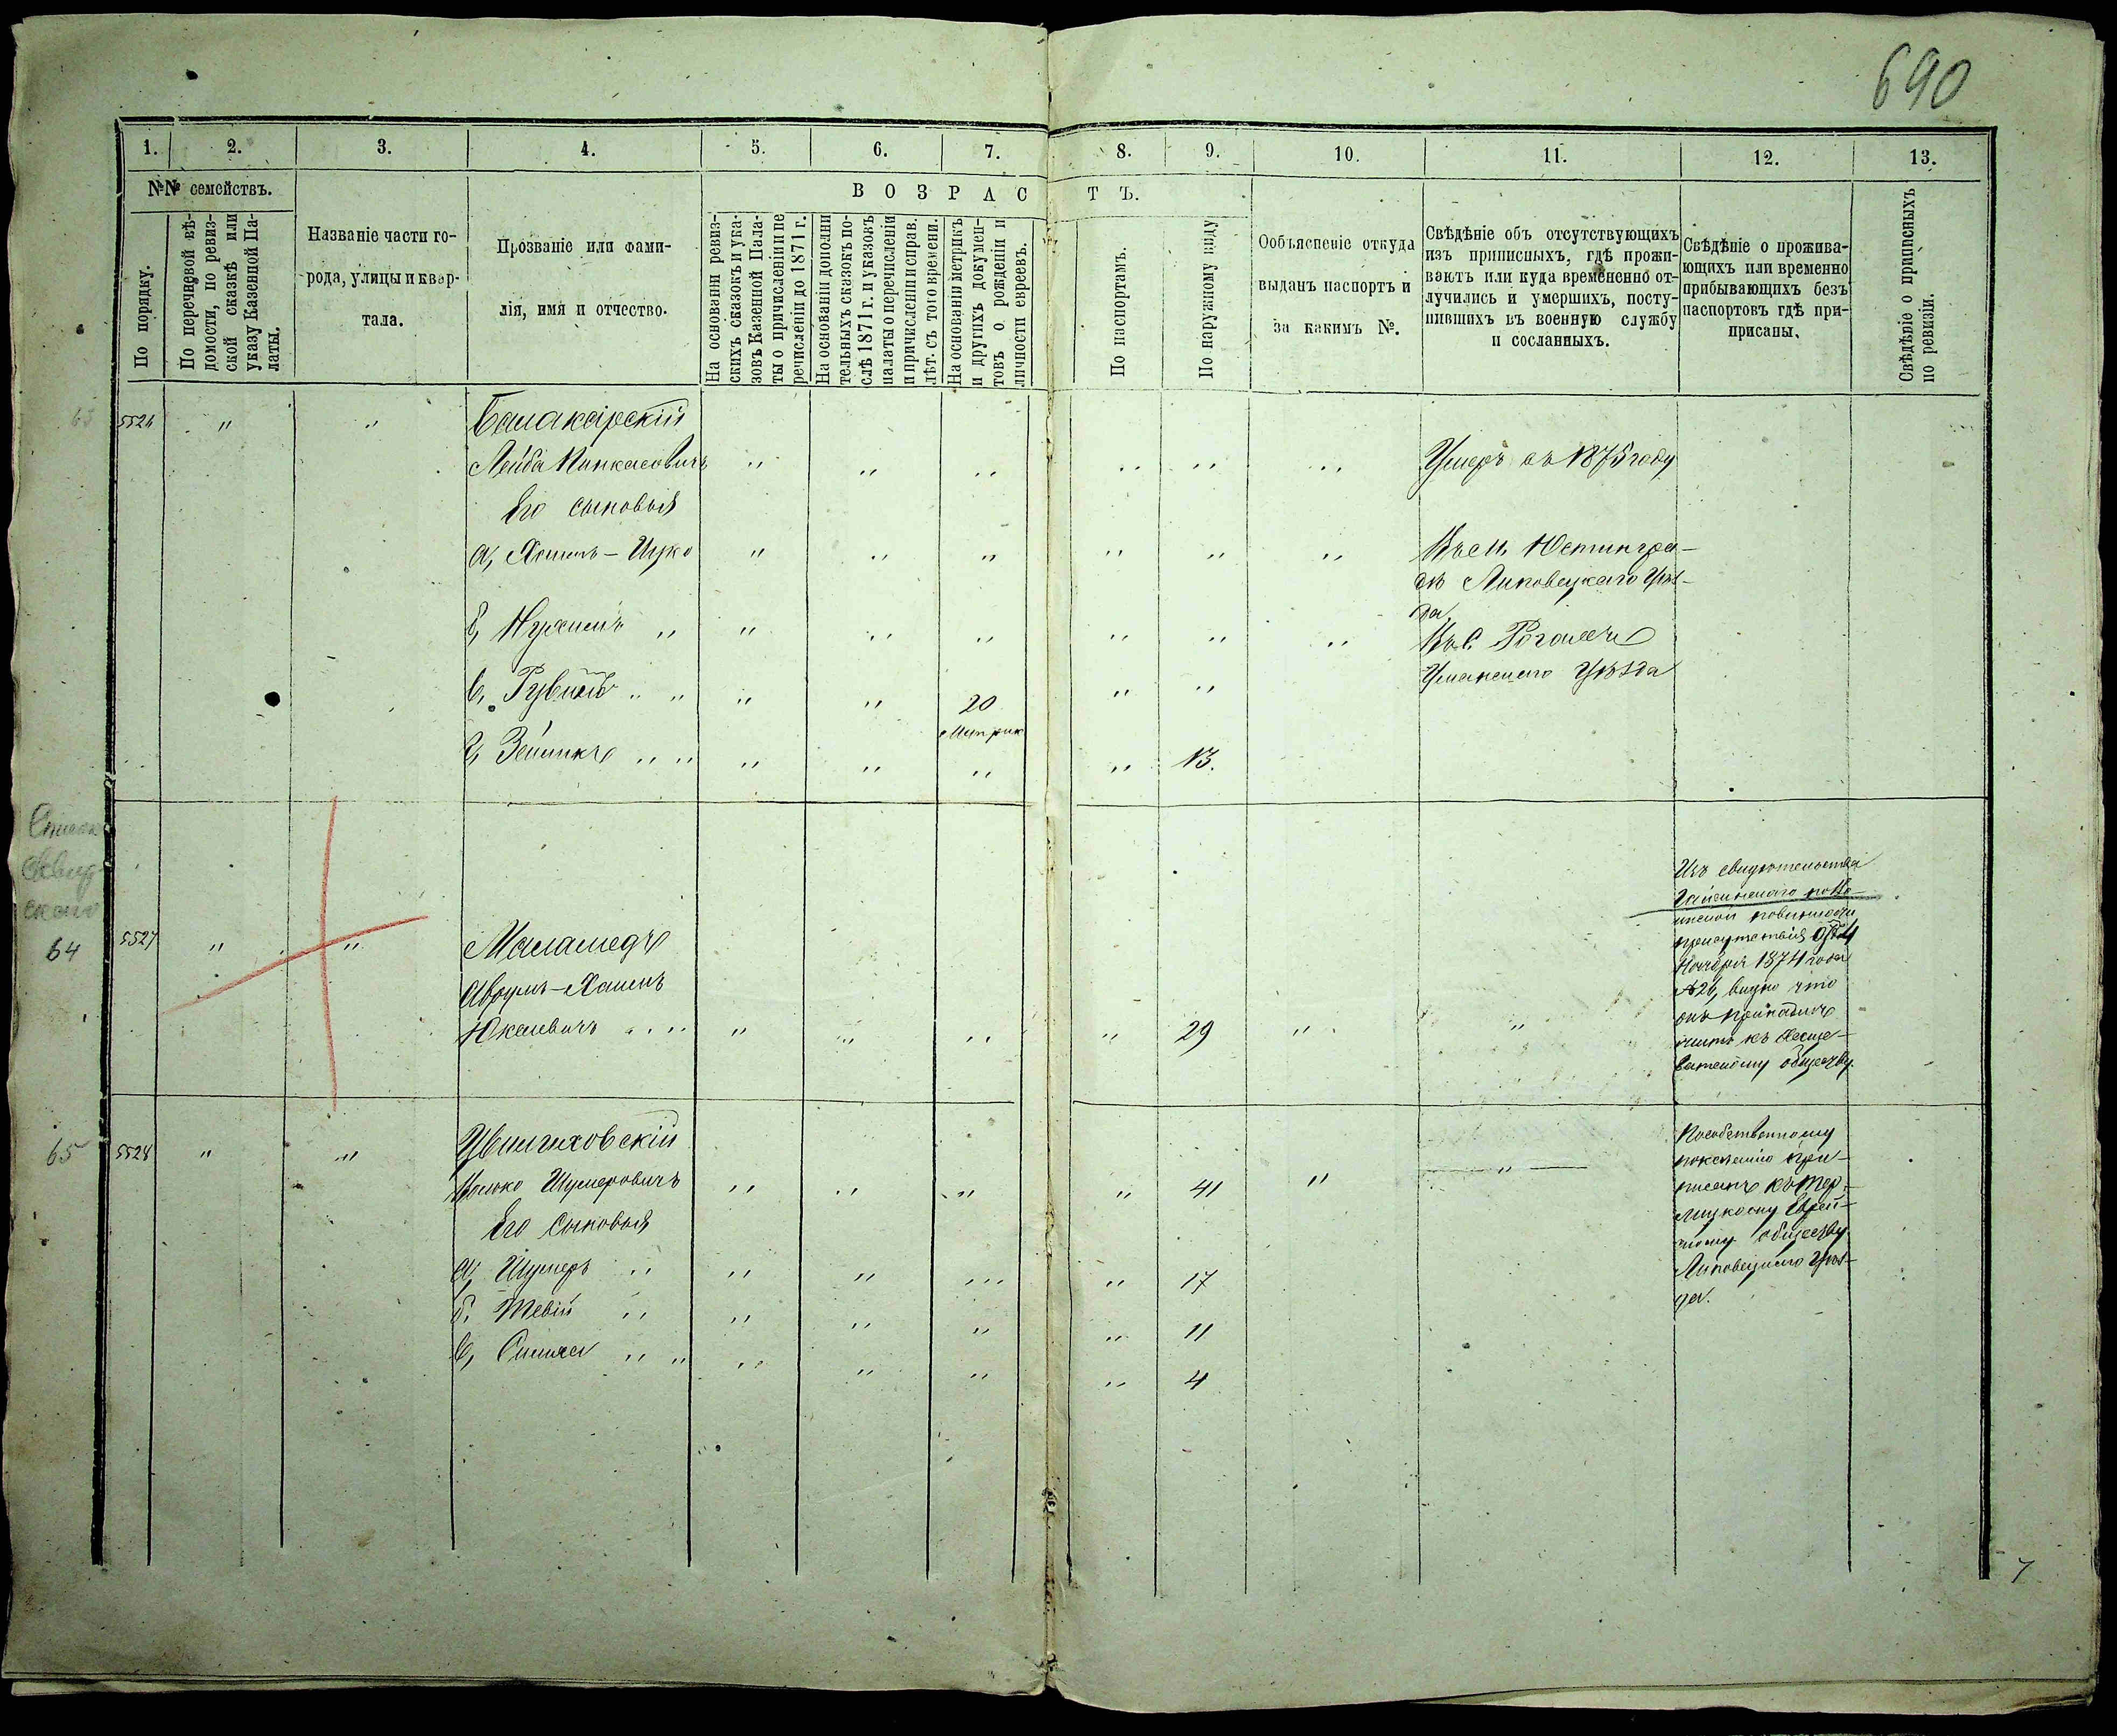 690
1. 2. 3. 4. 5. 6. 7. 8. 9. 10. 11. 12. 13.
№№ семействъ.
По порядку.
По перечневой вѣ-
домости, по ревиз-
ской сказкѣ или
указу Казенной Па-
латы.
Названіе части го-
рода, улицы и квар-
тала.
Прозваніе или фами-
лія, имя и отчество.
ВОЗРАСТЪ.
На основаніи ревиз-
скихъ сказокъ и ука-
зовъ Казенной Пала-
ты о причисленіи и пе
речисленіи до 1871 г.
На основаніи дополни
тельныхъ сказокъ по-
слѣ 1871 г. и указовъ
палаты о перечисленіи
и причисленіи и справ.
лѣт. съ того времени.
На основаніи метрикъ
и другихъ докумен-
товъ о рожденіи и
личности евреевъ.
По паспортамъ.
По наружному виду
Ообъясненіе откуда
выданъ паспортъ и
за какимъ №.
Свѣдѣніе объ отсутствующихъ
изъ приписныхъ, гдѣ прожи-
ваютъ или куда временно от-
лучились и умершихъ, посту-
пившихъ въ военную службу
и сосланныхъ.
Свѣдѣніе о прожива-
ющихъ или временно
прибывающихъ безъ
паспортовъ гдѣ при-
писаны.
Свѣдѣніе о приписныхъ
по ревизіи.
63 5526 " " Балакирскій
Лейба Пинкасовичъ " " " " " " Умеръ въ 1875 году
Его сыновья
а, Хаимъ-Ицко " " " " " " Въ м. Юстингра-
дѣ Липовецкаго Уѣз-
да
б, Нухимъ " " " " " " " Въ с. Рогахъ
Уманскаго Уѣзда
в, Рувинъ " " " " 20 " "
Метрик
г, Зейликъ " " " " " " 13.
64 5527 " " Маламедъ
Аврумъ-Хаимъ
Юкелевичъ " " " " " " 29 " "
Изъ свидѣтельства
Гайсинскаго по Во-
инской повинности
присутствія отъ 4
Ноября 1874 года
№ 26, видно что
онъ принадле
житъ къ Хаще-
ватскому обществу.
65 5528 " " Цвилиховскій
Волько Шулеровичъ " " " " 41 " "
Его сыновья
а, Шулеръ " " " " " 17
б, Тевій " " " " " 11
в, Симха " " " " " " 4
По собственному
показанію при-
писанъ къ Тер-
лицкому Еврей-
скому обществу
Липовецкаго Уѣз-
да.